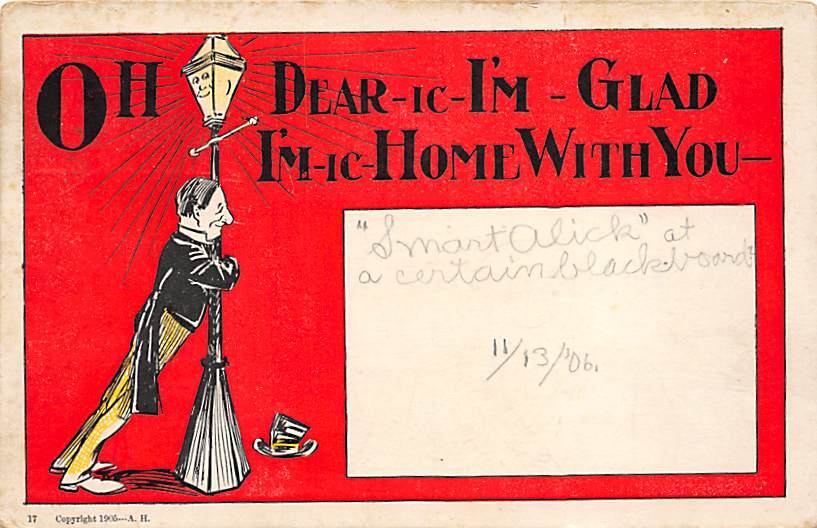 OH DEAR-IC-I'M - GLAD
I'M-IC-HOME WITH YOU—
"Smart Alick" at
a certain blackboard
11/13/'06.
17 Copyright 1905---A. H.